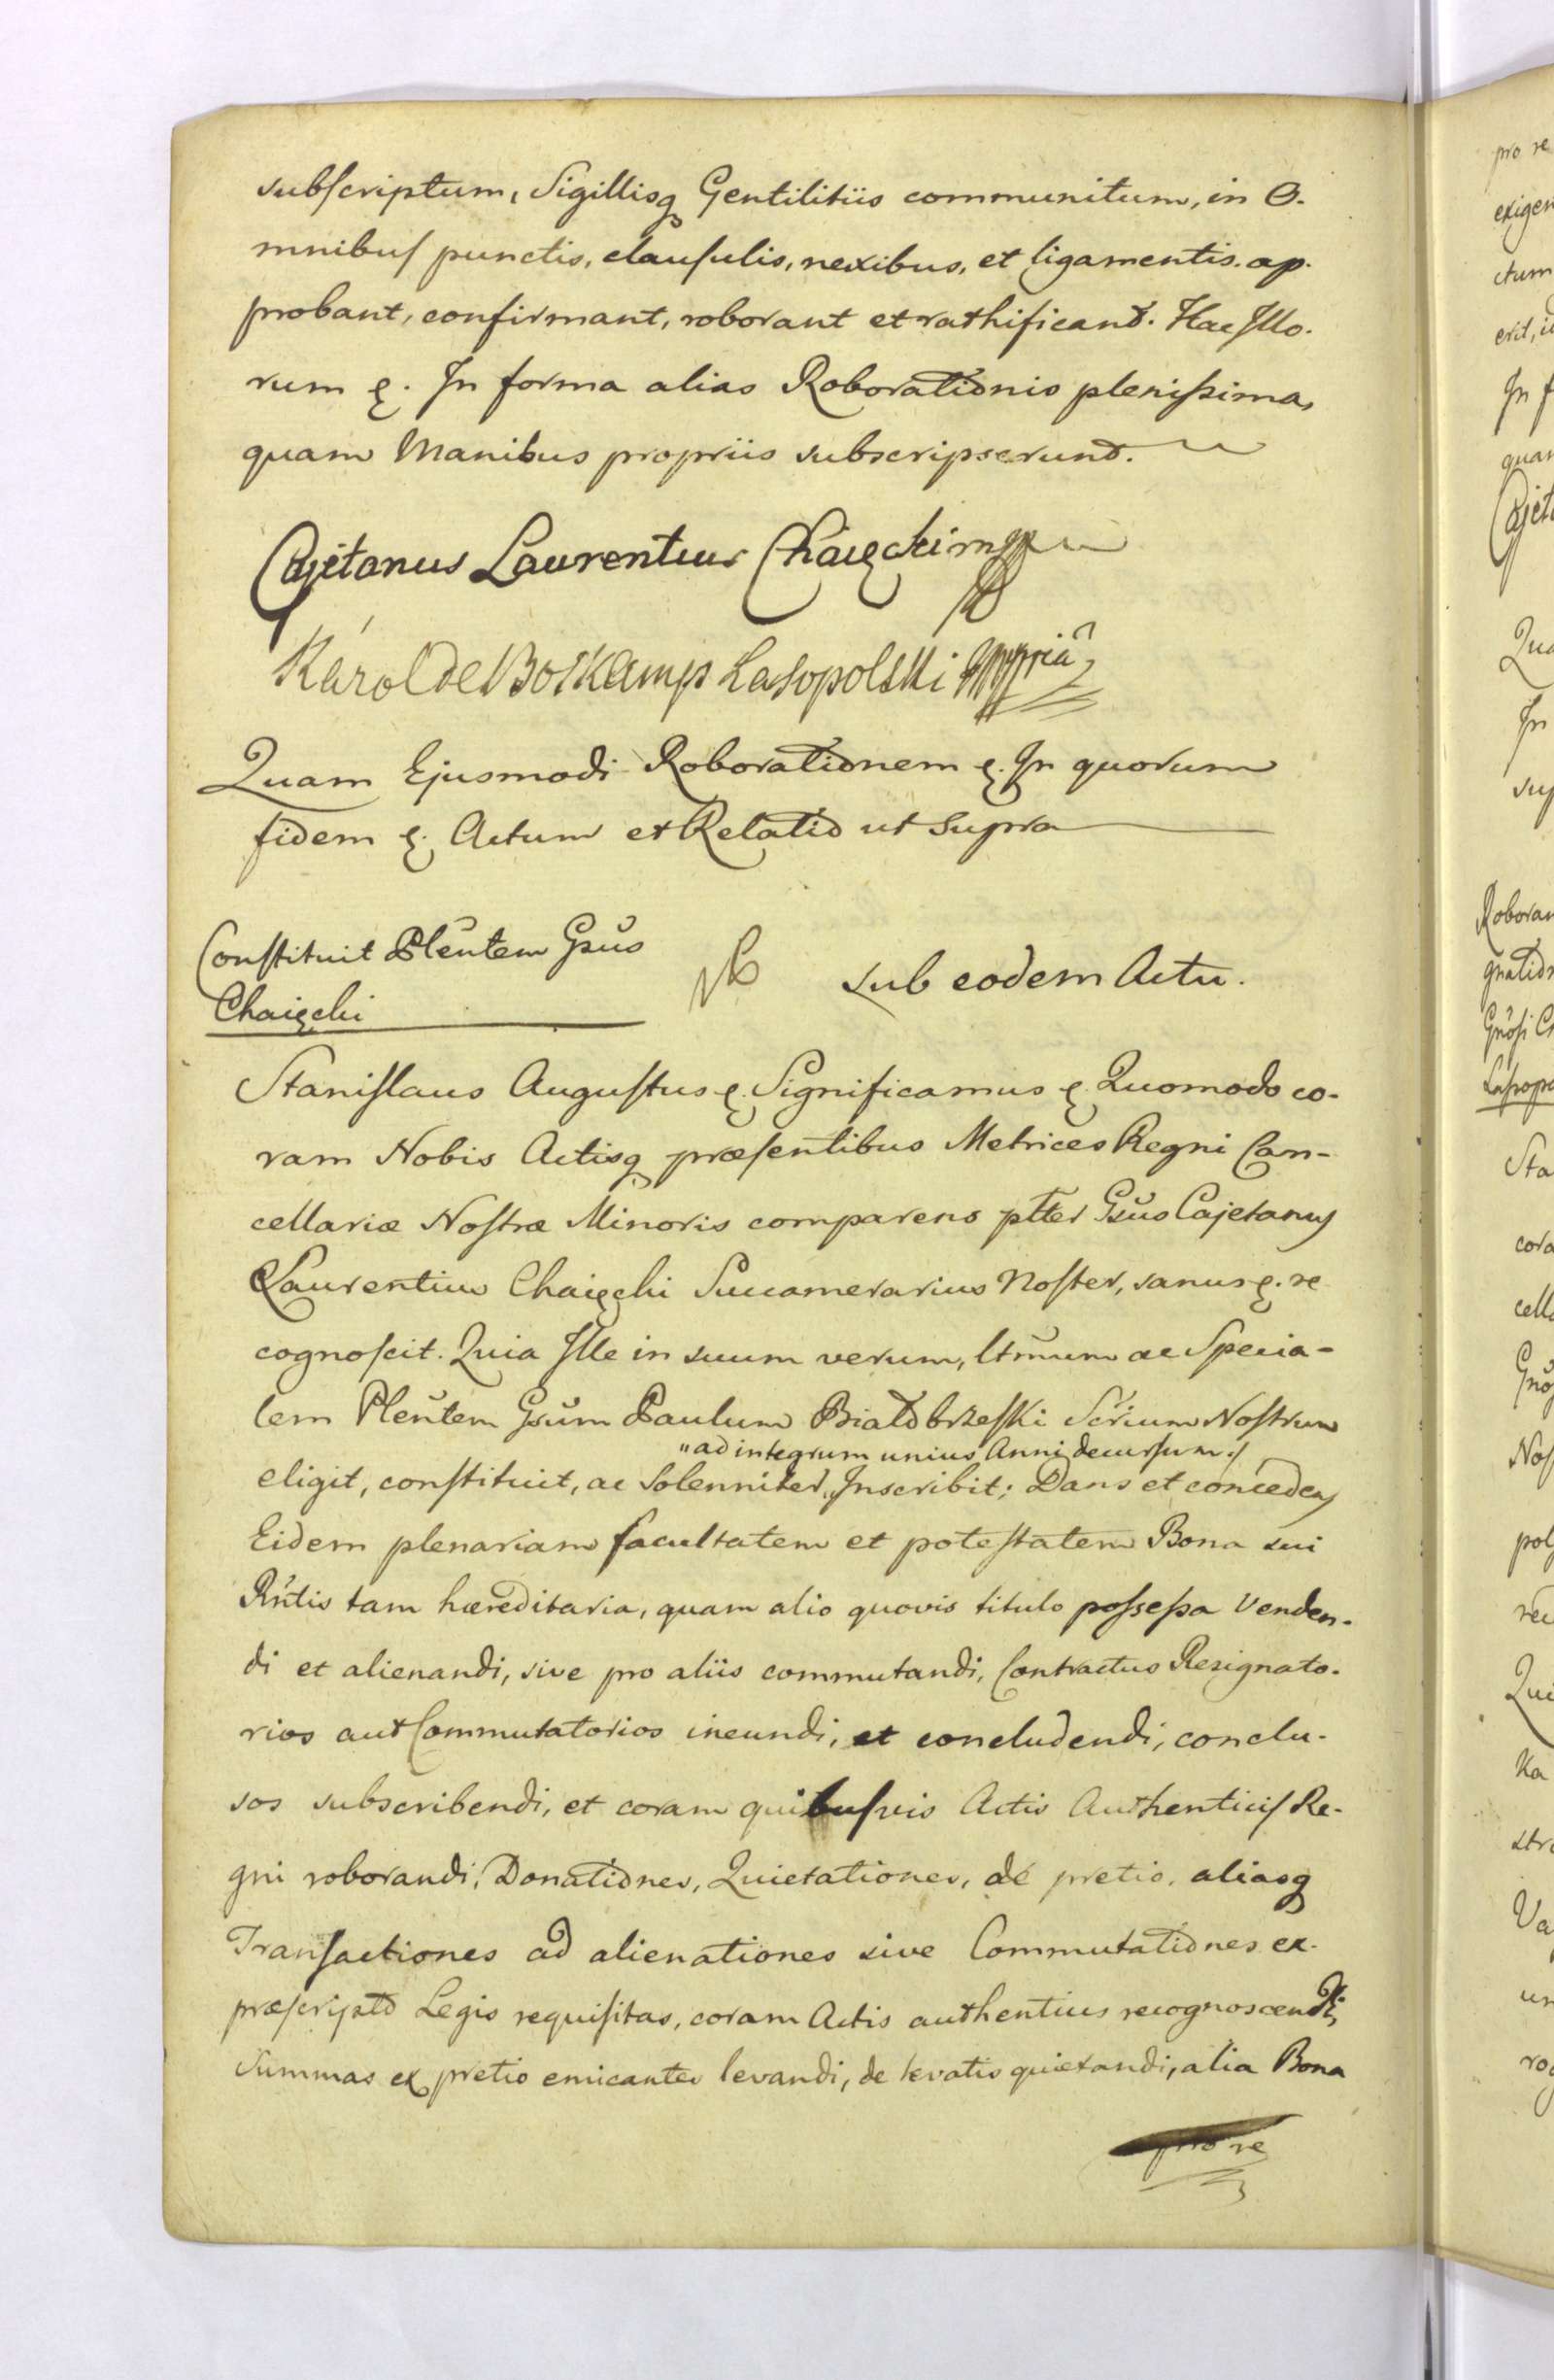 subscriptum, Sigillisq Gentilitiis communitum, in O-
mnibus punctis, clausulis, nexibus, et ligamentis ap-
probant, confirmant, roborant et rathificant. Hac Illo-
rum &. In forma alias Roborationis plenissima,
quam Manibus propriis subscripserunt.
Cajetanus Laurentius Chaięcki mpp
Karol de Boskamp Lasopolski mppria
Quam Ejusmodi Roborationem &. In quorum
fidem &. Actum et Relatio ut Supra
Constituit Plentem Gsus
Chaięcki
sub eodem Actu.
Stanislaus Augustus &. Significamus &. Quomodo co-
ram Nobis Actisq præsentibus Metrices Regni Can-
cellariæ Nostræ Minoris comparens ptter Gsus Cajetanus
Laurentius Chaięcki Succamerarius Noster, sanus &. re
cognoscit. Quia Ille in suum verum, ltmum ac Specia-
lem Plentem Gsum Paulum Białobrzeski Scrium Nostrum
"ad integrum unius Anni decursum:/
eligit, constituit, ac Solenniter, Inscribit; Dans et concedens
Eidem plenariam facultatem et potestatem Bona sui
Rntis tam hæreditaria, quam alio quovis titulo possessa Venden-
di et alienandi, sive pro aliis commutandi, Contractus Resignato-
rios aut Commutatorios ineundi, et concludendi, conclu-
sos subscribendi, et coram quibusvis Actis Authenticis Re-
gni roborandi, Donationes, Quietationes, de pretio, aliasq
Transactiones ad alienationes sive Commutationes ex-
præscripto Legis requisitas, coram Actis authenticis recognoscendi,
Summas ex pretio emicantes levandi, de levatis quietandi, alia Bona
pro re